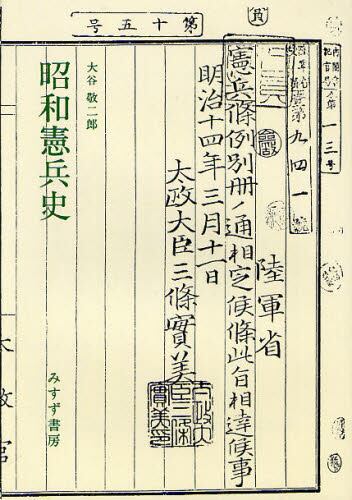 第十五号
大谷敬二郎
昭和憲兵史
みすず書房
陸軍省
憲兵條例別冊ノ通相定候條此旨相達候事
明治十四年三月十一日
太政大臣三條實美
九四一
一三号
太政官